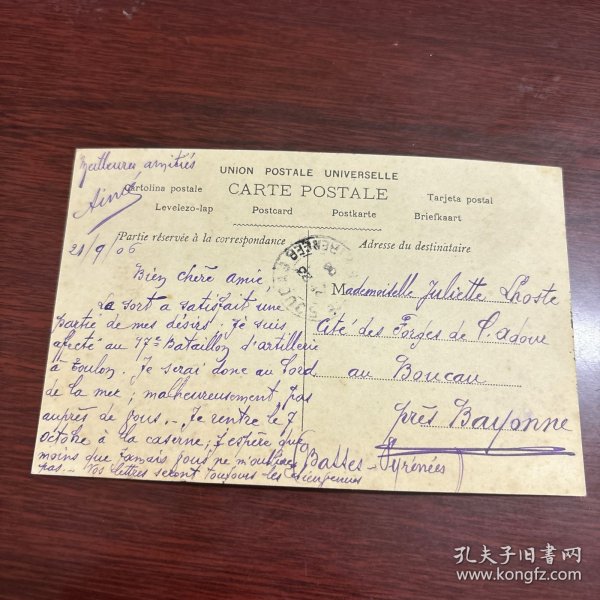 Meilleures amitiés
Aimé
UNION POSTALE UNIVERSELLE
Cartolina postale CARTE POSTALE Tarjeta postal
Levelezo-lap Postcard Postkarte Briefkaart
Partie réservée à la correspondance
Adresse du destinataire
21/9/06
Bien chère amie,
Le sort a satisfait une
partie de mes désirs. Je suis
afecté au 17e Bataillon d'artillerie
à Toulon. Je serai donc au bord
de la mer; malheureusement pas
auprès de vous. - Je rentre le 7
octobre à la caserne; J'espère que
moins que jamais vous ne m'oublierez
pas. - Vos lettres seront toujours les bienvenues
Mademoiselle Juliette Lhoste
Cité des Forges de l'adour
au Boucau
près Bayonne
(Basses-Pyrénées)
孔夫子旧书网
www.kongfz.com